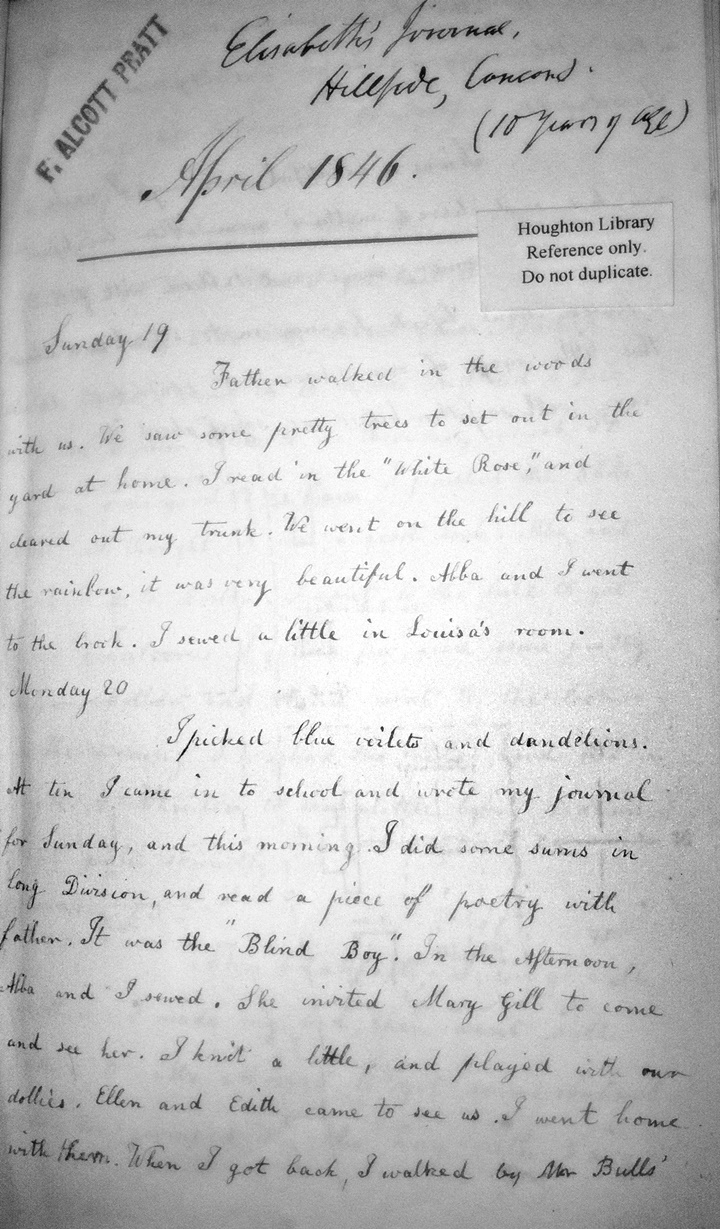 F. ALCOTT PRATT
Elisabeth's Journal,
Hillside, Concord.
(10 years of age)
April 1846.
Houghton Library
Reference only.
Do not duplicate.
Sunday 19
Father walked in the woods
with us. We saw some pretty trees to set out in the
yard at home. I read in the "White Rose," and
cleared out my trunk. We went on the hill to see
the rainbow, it was very beautiful. Abba and I went
to the brook. I sewed a little in Louisa's room.
Monday 20
I picked blue voilets and dandelions.
At ten I came in to school and wrote my journal
for Sunday, and this morning. I did some sums in
long Division, and read a piece of poetry with
father. It was the "Blind Boy". In the Afternoon,
Abba and I sewed. She invited Mary Gill to come
and see her. I knit a little, and played with our
dollies. Ellen and Edith came to see us. I went home
with them. When I got back, I walked by Mr Bulls'